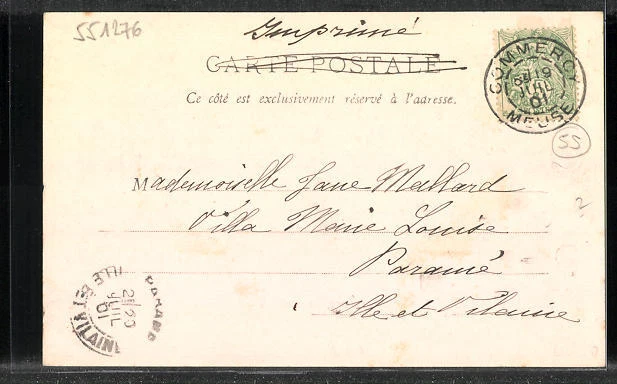 551276
Imprimé
CARTE POSTALE
Ce côté est exclusivement réservé à l'adresse.
COMMERCY
19
JUIL
01
MEUSE
55
Mademoiselle Jane Mallard
Villa Marie Louise
Paramé
Ille et Vilaine
PARAMÉ
20
JUIL
01
ILLE ET VILAINE
2